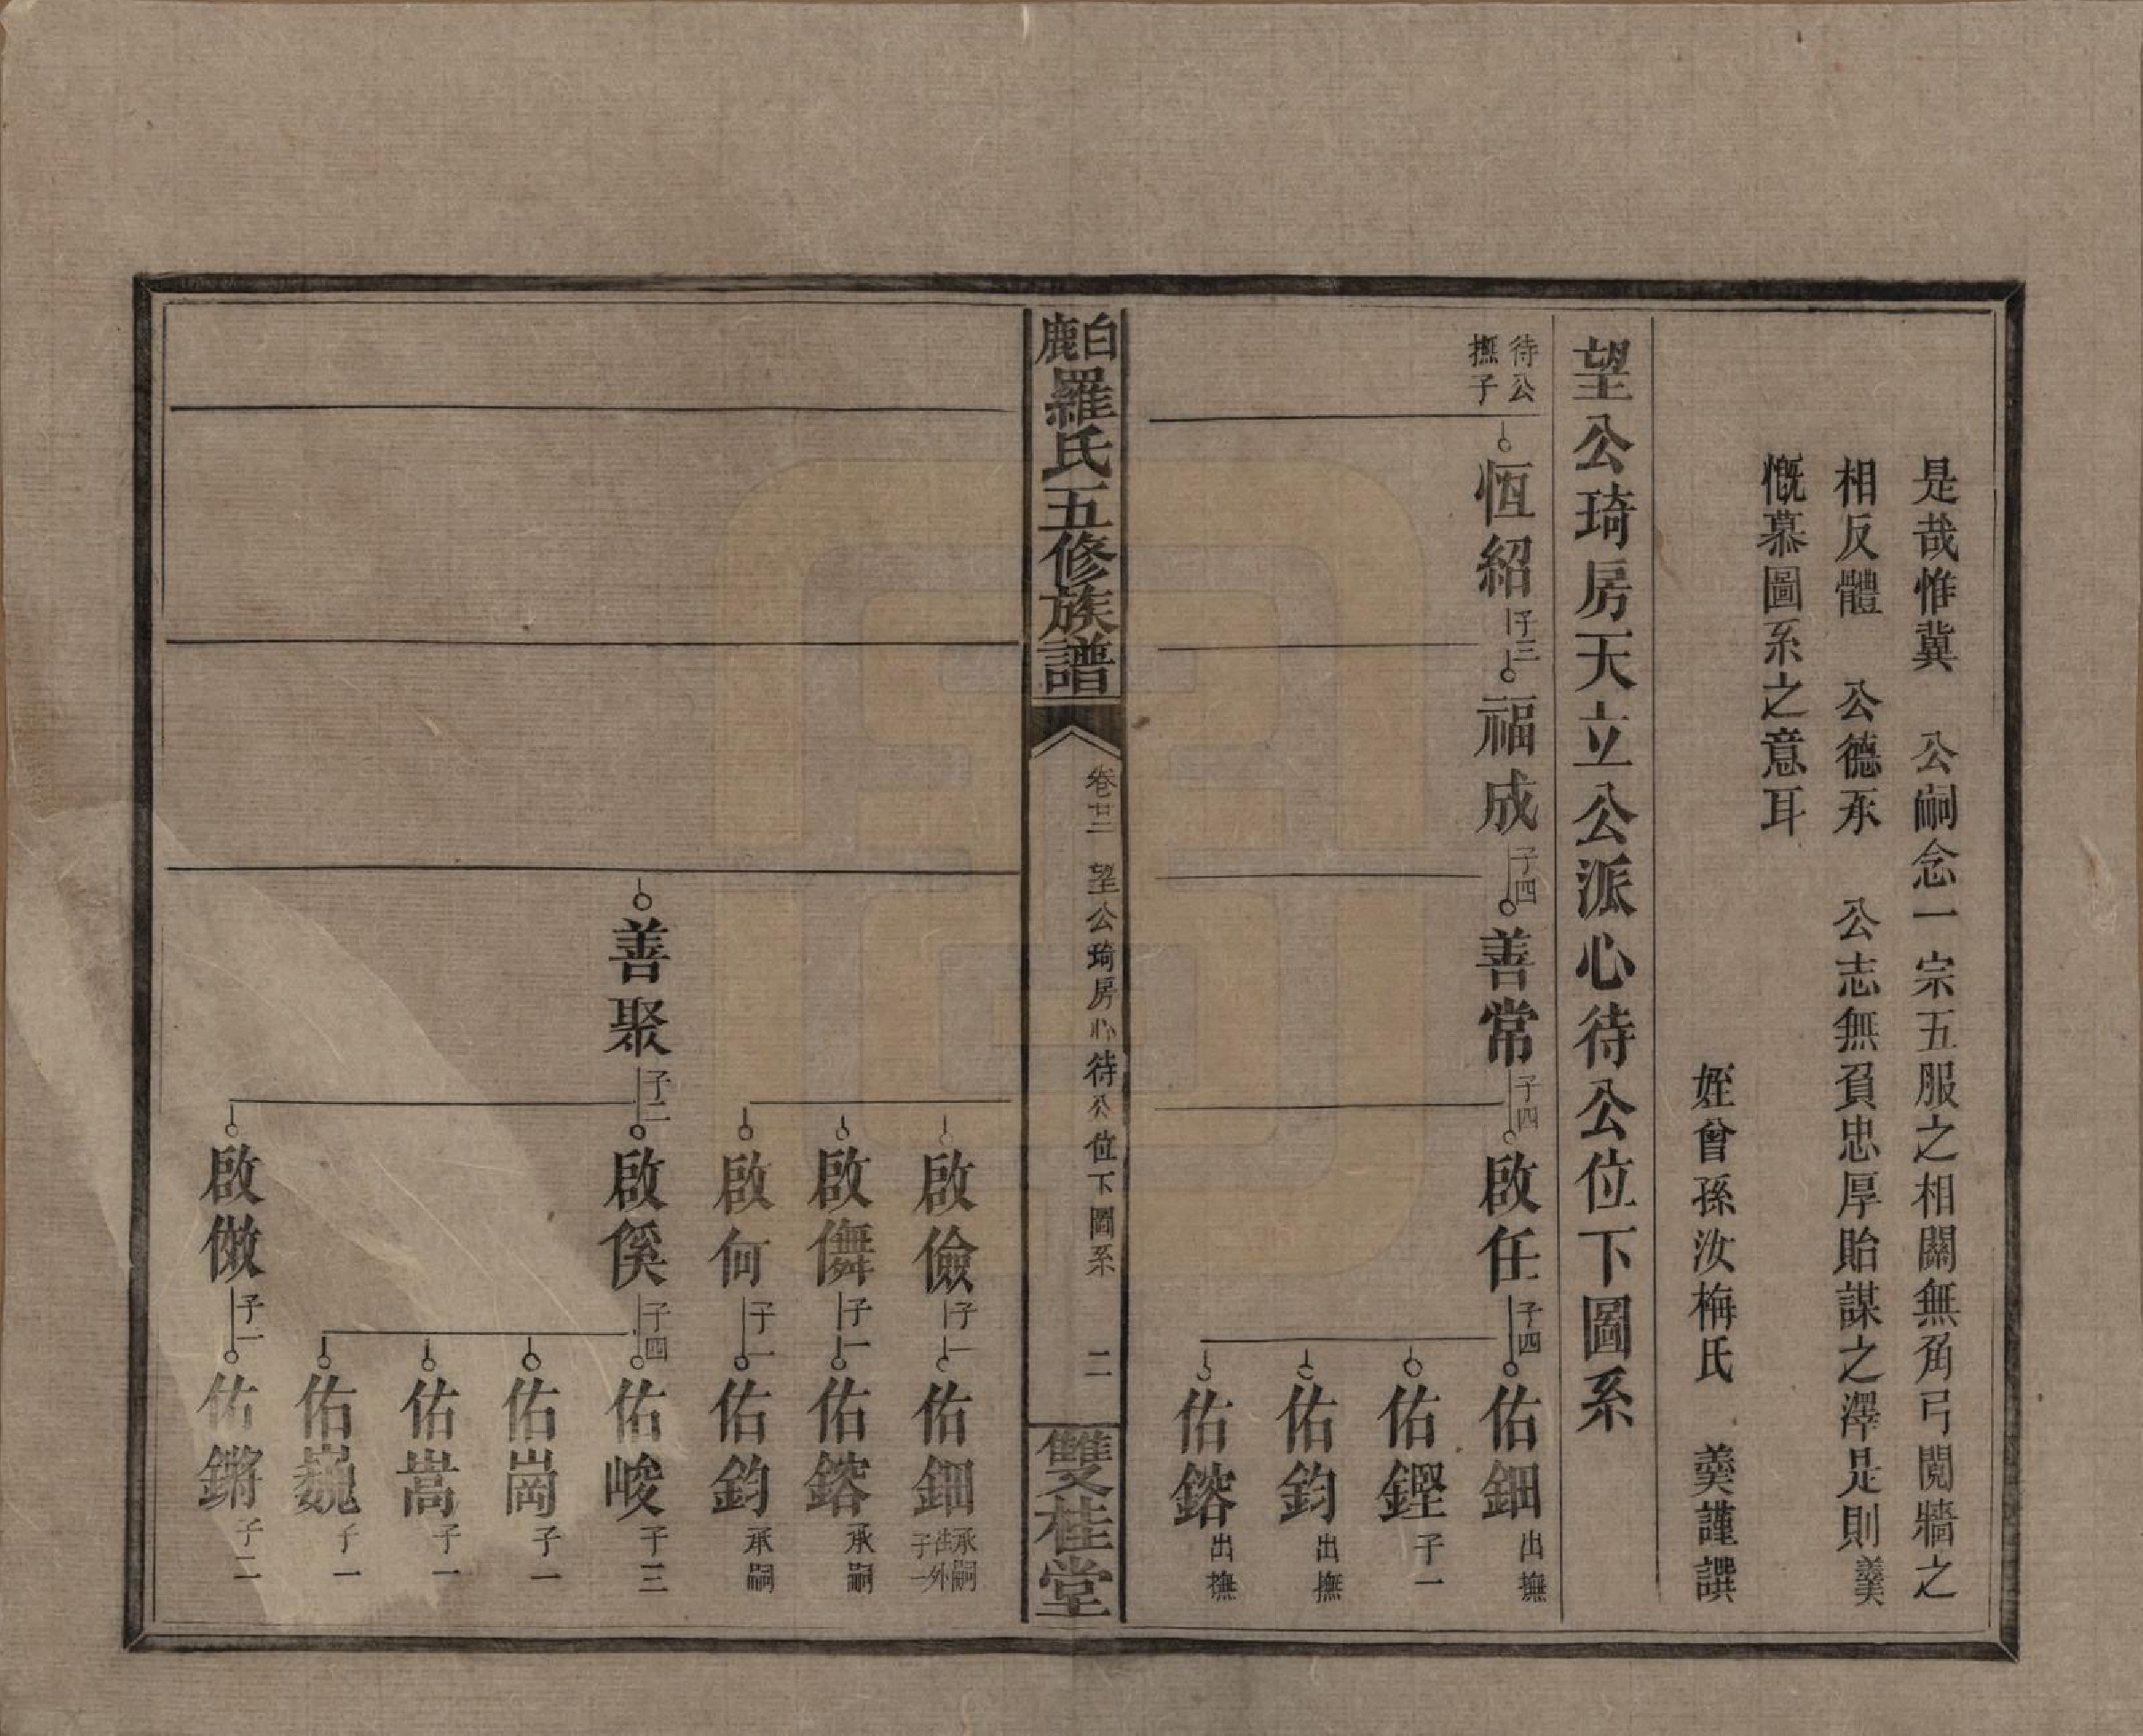 是哉惟冀　公嗣念一宗五服之相關無角弓鬩牆之
相反體　公德不　公志無負忠厚貽謀之澤是則羹
慨慕圖系之意耳
姪曾孫汝梅氏　羹謹譔
望公琦房天立公派心待公位下圖系
待公
撫子
恆紹 子三
福成 子四
善常 子四
啟任 子四
佑鈿 出撫
佑鏗 子一
佑鈞 出撫
佑鎔 出撫
白鹿羅氏五修族譜
卷廿二　望公琦房心待公位下圖系　二
雙桂堂
啟儉 子一
佑鈿 承嗣 往外 子一
啟儛 子一
佑鎔 承嗣
啟何 子一
佑鈞 承嗣
善聚 子二
啟傒 子四
佑峻 子三
佑崗 子一
佑嵩 子一
佑巍 子一
啟傚 子一
佑鏘 子二